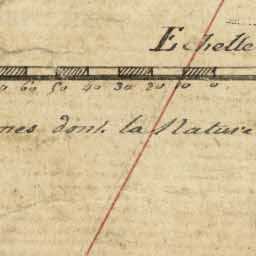 Echelle
0 60 50 40 30 20 10 0
nes dont la Nature